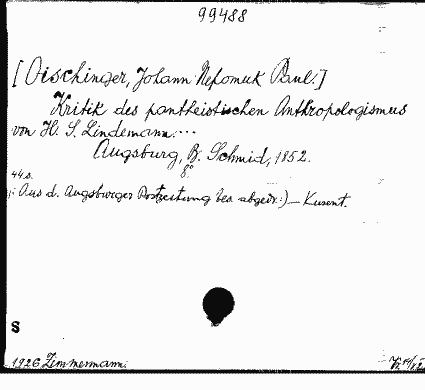 99488
[Oischinger, Johann Nepomuk Paul.]
Kritik des pantheistischen Anthropologismus
von H. S. Lindemann....
Augsburg, B. Schmid, 1852.
8°
44 s.
Aus d. Augsburger Postzeitung bes. abgedr.) — Kusent.
S
1926 Zimmermann.